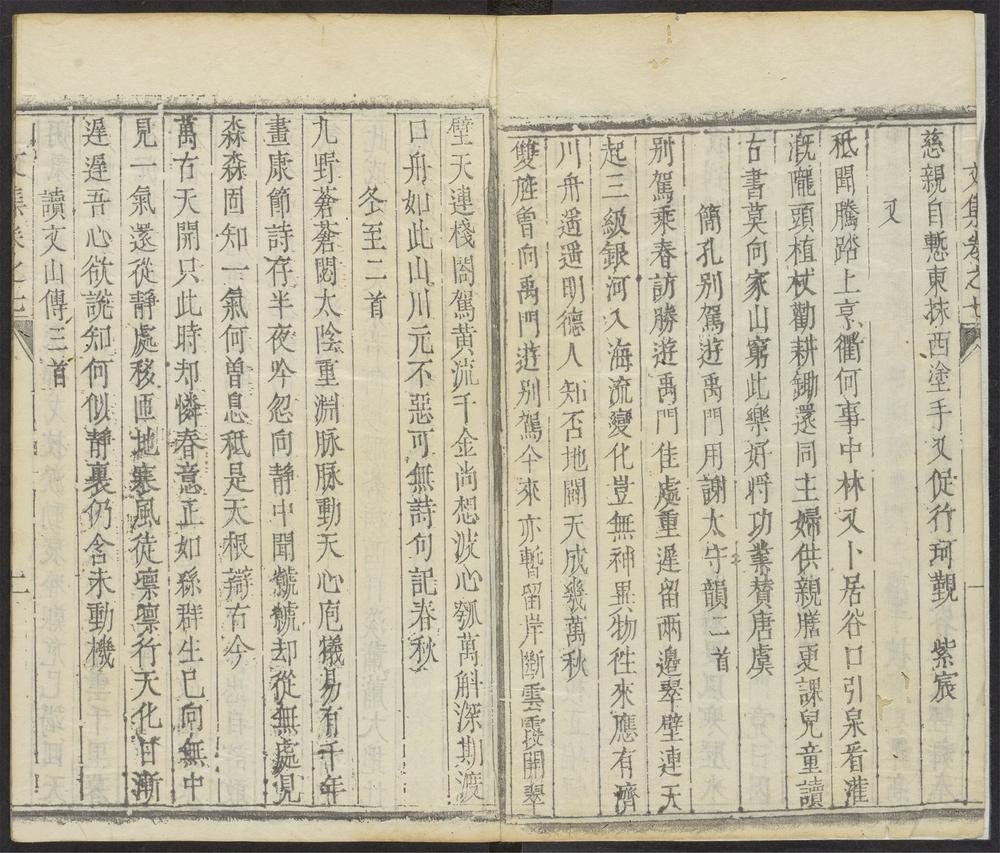 文集卷之七
慈親自慙東抹西塗手又促行珂覲紫宸
又
秪聞騰踏上亨衢何事中林又卜居谷口引泉看灌
溉隴頭植杖勸耕鋤還同主婦供親膳更課兒童讀
古書莫向家山窮此樂好將功業贊唐虞
簡孔别駕遊禹門用謝太守韻二首
别駕乘春訪勝遊禹門佳處重遲留兩邊翠壁連天
起三級銀河入海流變化豈無神異物徃來應有濟
川舟遥遥明德人知否地闢天成幾萬秋
雙旌曾向禹門遊别駕今來亦暫留岸斷雲霞開翠
壁天連棧閣駕黄流千金尚想波心瓠萬斛深期渡
口舟如此山川元不惡可無詩句記春秋
冬至二首
九野蒼蒼閟太陰重淵脉脉動天心庖犧易有千年
畫康節詩存半夜吟忽向静中聞虩虩却從無處見
森森固知一氣何曾息秪是天根辯古今
萬古天開只此時却憐春意正如絲群生已向無中
見一氣還從静處移匝地寒風徒凛凛行天化日漸
遲遲吾心欲說知何似静裏仍含未動機
讀文山傳三首
文集卷之七
二